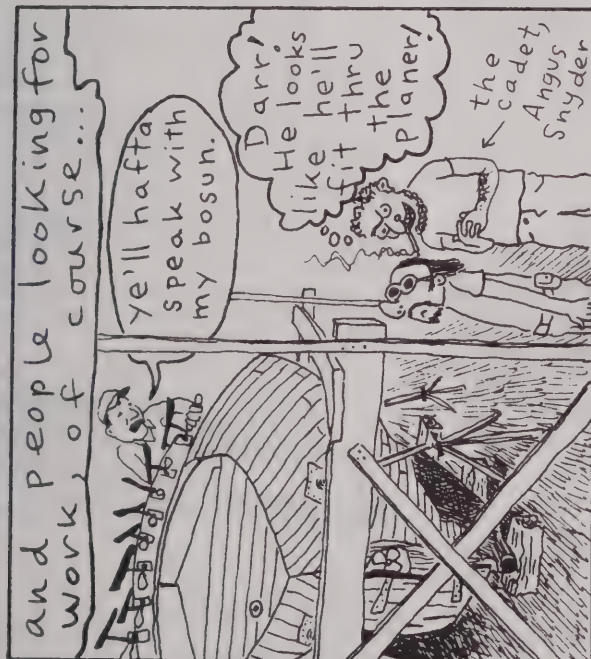 and people looking for
work, of course...
ye'll hafta
speak with
my bosun.
Darr!
He looks
like he'll
fit thru
the
planer!
the
cadet,
Angus
Snyder